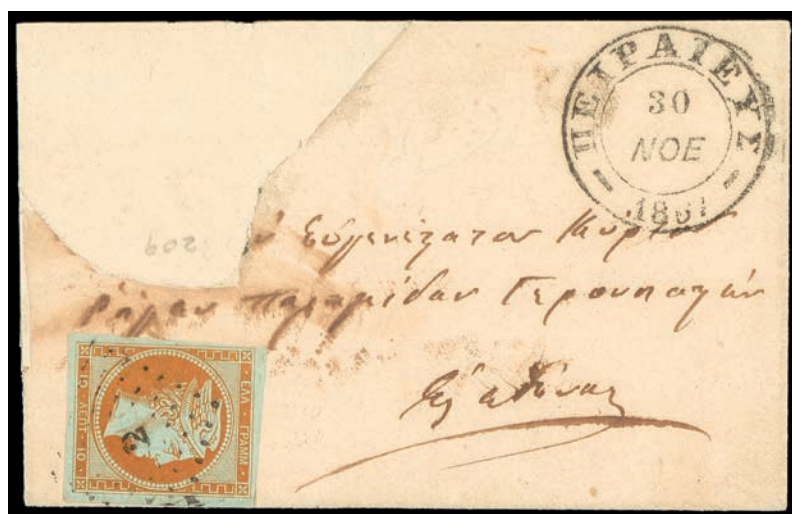 ΠΕΙΡΑΙΕΥΣ
30
ΝΟΕ
1861
Εὐγενέστατον Κύριον
Γερουσιαστήν
Εἰς Ἀθήνας
209
ΕΛΛ ΓΡΑΜΜ
10 ΛΕΠΤ 10
2